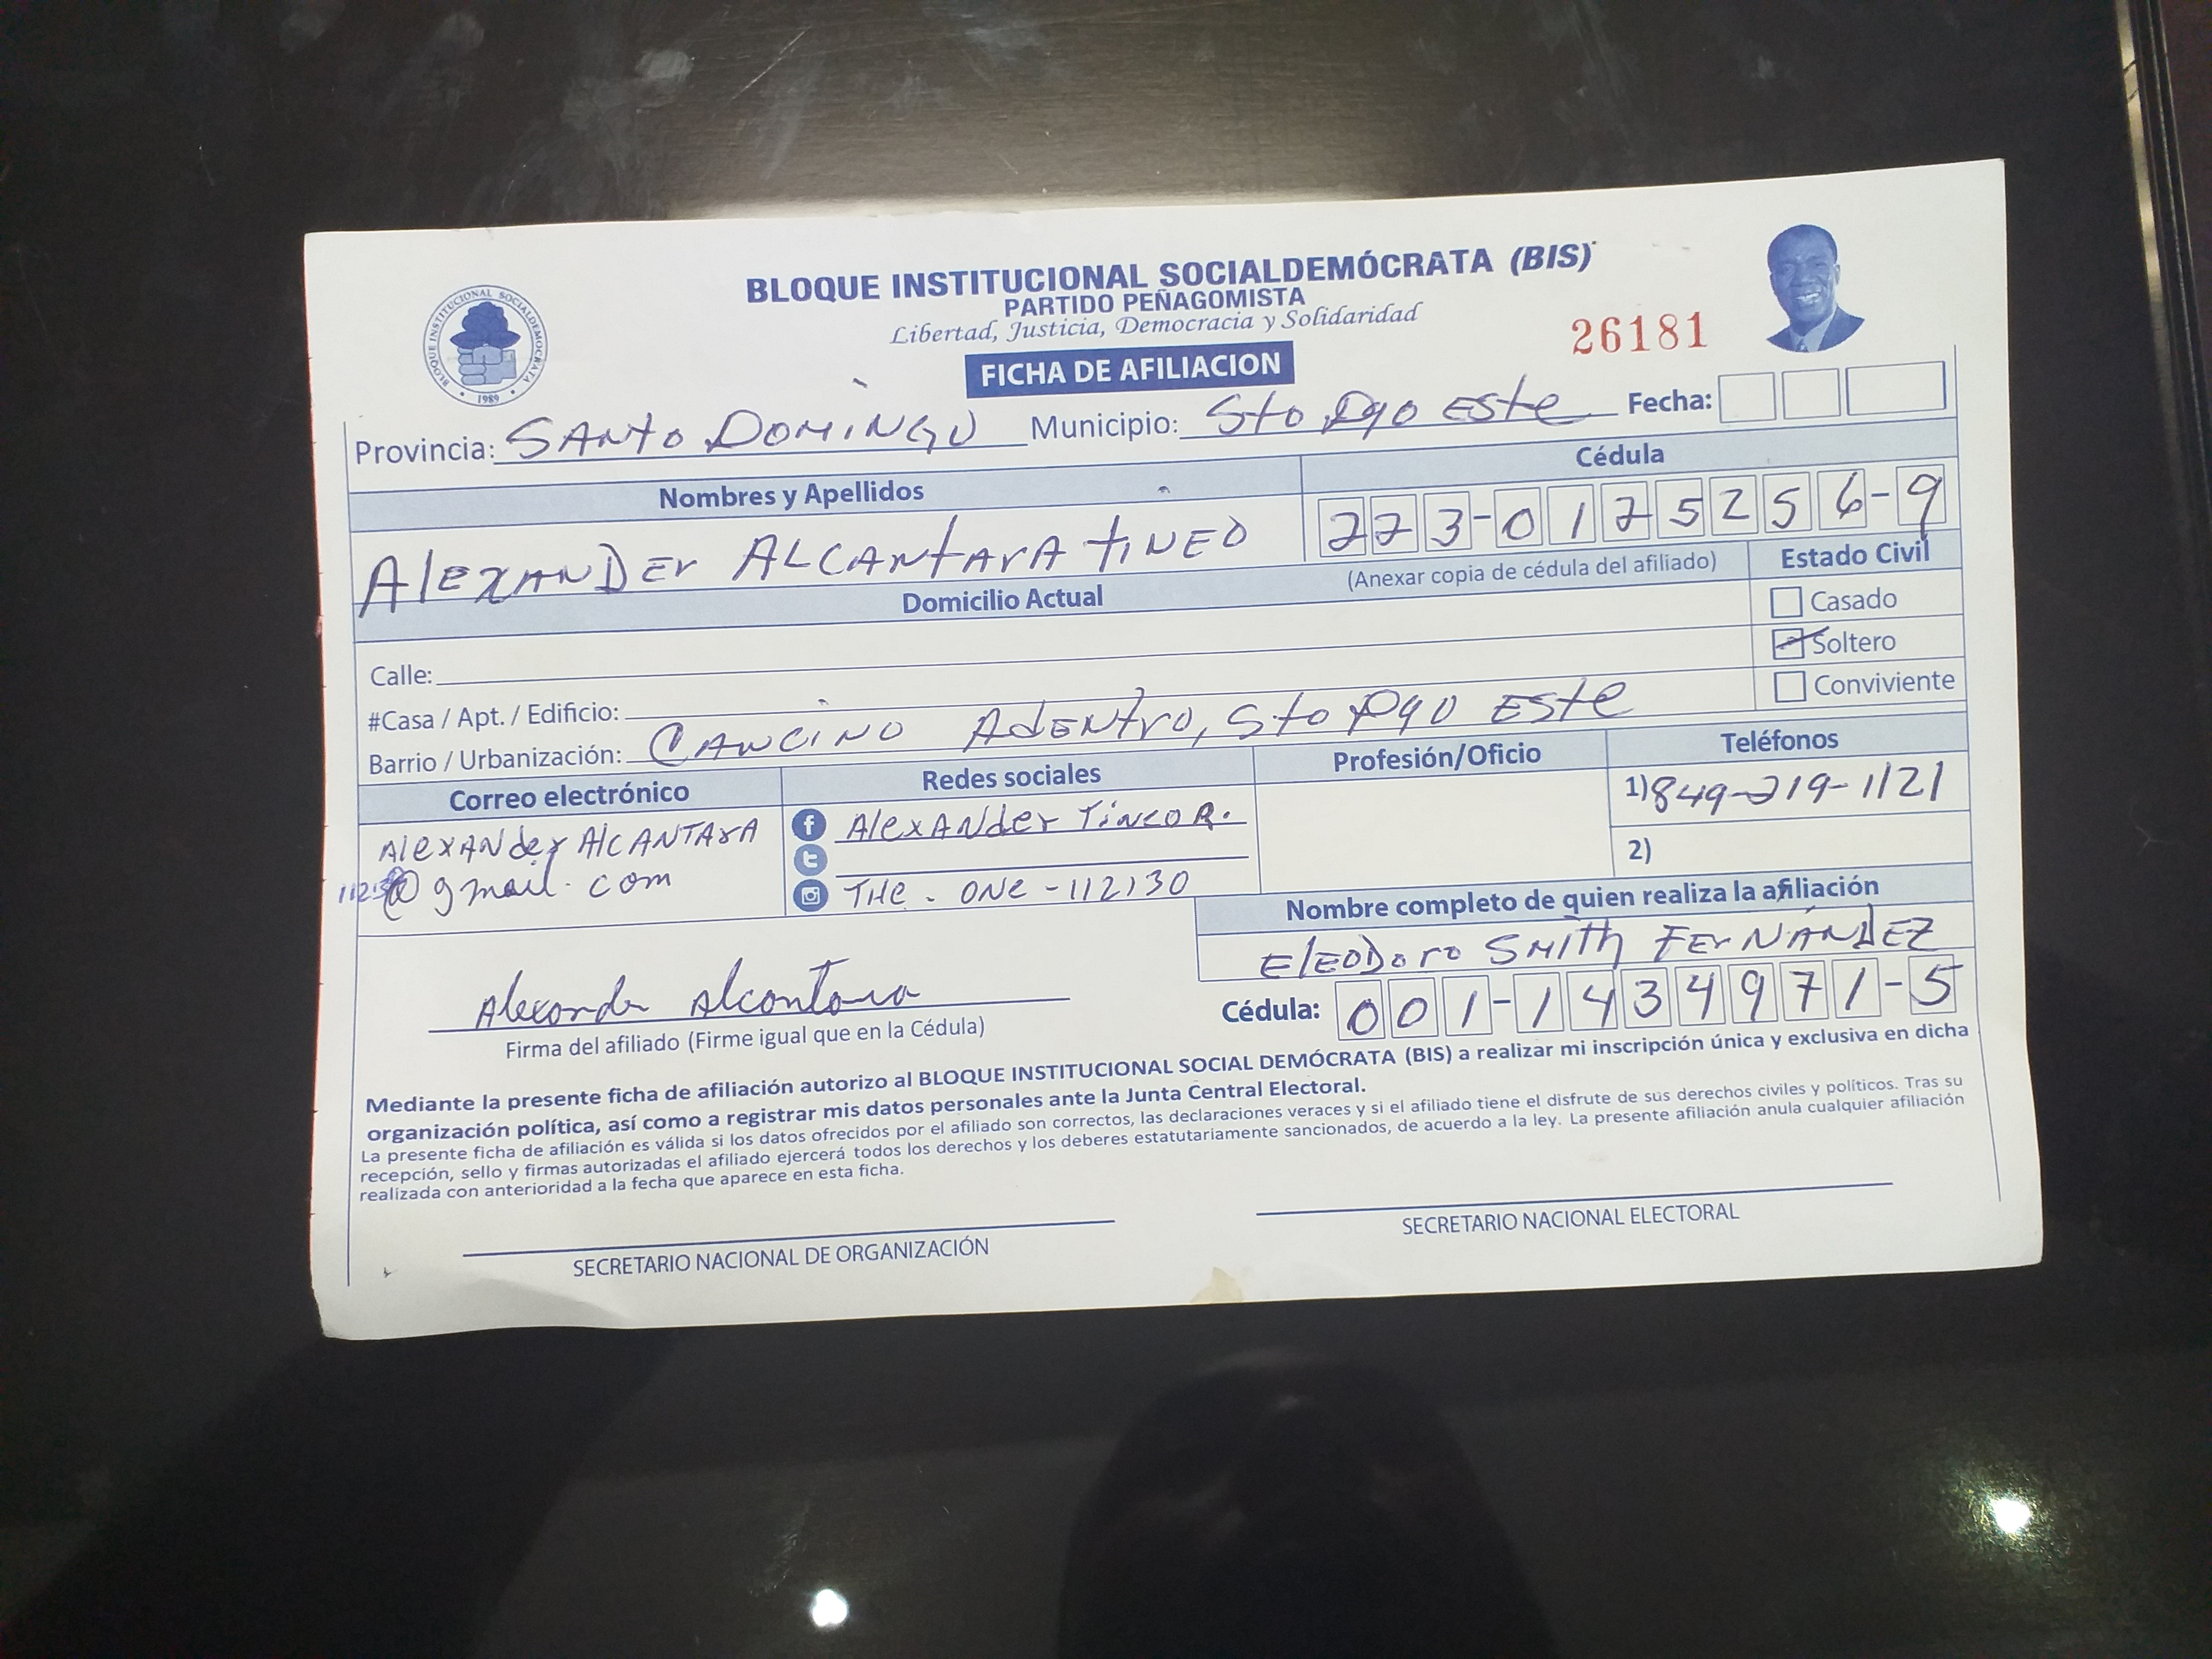 BLOQUE INSTITUCIONAL SOCIALDEMÓCRATA (BIS)
PARTIDO PEÑAGOMISTA
Libertad, Justicia, Democracia y Solidaridad
BLOQUE INSTITUCIONAL SOCIALDEMOCRATA
1989
26181
FICHA DE AFILIACION
Provincia: SANTO DOMINGO Municipio: Sto Dgo Este Fecha:
Nombres y Apellidos Cédula
AlexANDEr ALCANtArA tiNEO 223-0175256-9
Domicilio Actual (Anexar copia de cédula del afiliado) Estado Civil
Casado
Calle: Soltero
#Casa / Apt. / Edificio: Conviviente
Barrio / Urbanización: CANCINO AdENtrO, Sto Dgo Este
Correo electrónico Redes sociales Profesión/Oficio Teléfonos
AlexANder AlCANTArA AlexANder Tineo R. 1) 849-219-1121
@gmail.com 2)
THE. ONE -112130
Nombre completo de quien realiza la afiliación
ElEODoro SMITh FErNÁNdEZ
Alexander Alcantara Cédula: 001-1434971-5
Firma del afiliado (Firme igual que en la Cédula)
Mediante la presente ficha de afiliación autorizo al BLOQUE INSTITUCIONAL SOCIAL DEMÓCRATA (BIS) a realizar mi inscripción única y exclusiva en dicha
organización política, así como a registrar mis datos personales ante la Junta Central Electoral.
La presente ficha de afiliación es válida si los datos ofrecidos por el afiliado son correctos, las declaraciones veraces y si el afiliado tiene el disfrute de sus derechos civiles y políticos. Tras su
recepción, sello y firmas autorizadas el afiliado ejercerá todos los derechos y los deberes estatutariamente sancionados, de acuerdo a la ley. La presente afiliación anula cualquier afiliación
realizada con anterioridad a la fecha que aparece en esta ficha.
SECRETARIO NACIONAL DE ORGANIZACIÓN SECRETARIO NACIONAL ELECTORAL